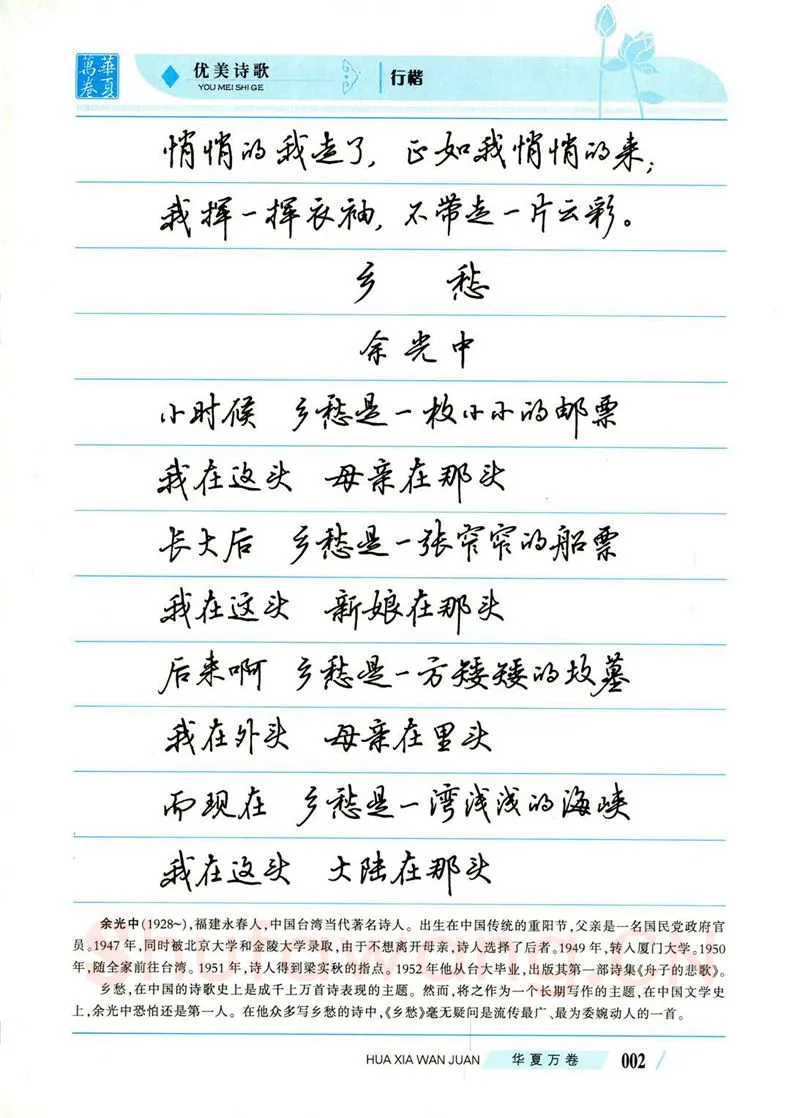 華夏
萬卷
优美诗歌
YOU MEI SHI GE
行楷
悄悄的我走了，正如我悄悄的来；
我挥一挥衣袖，不带走一片云彩。
乡 愁
余光中
小时候 乡愁是一枚小小的邮票
我在这头 母亲在那头
长大后 乡愁是一张窄窄的船票
我在这头 新娘在那头
后来啊 乡愁是一方矮矮的坟墓
我在外头 母亲在里头
而现在 乡愁是一湾浅浅的海峡
我在这头 大陆在那头
余光中(1928~)，福建永春人，中国台湾当代著名诗人。出生在中国传统的重阳节，父亲是一名国民党政府官
员。1947年，同时被北京大学和金陵大学录取，由于不想离开母亲，诗人选择了后者。1949年，转入厦门大学。1950
年，随全家前往台湾。1951年，诗人得到梁实秋的指点。1952年他从台大毕业，出版其第一部诗集《舟子的悲歌》。
乡愁，在中国的诗歌史上是成千上万首诗表现的主题。然而，将之作为一个长期写作的主题，在中国文学史
上，余光中恐怕还是第一人。在他众多写乡愁的诗中，《乡愁》毫无疑问是流传最广、最为委婉动人的一首。
HUA XIA WAN JUAN
华夏万卷
002